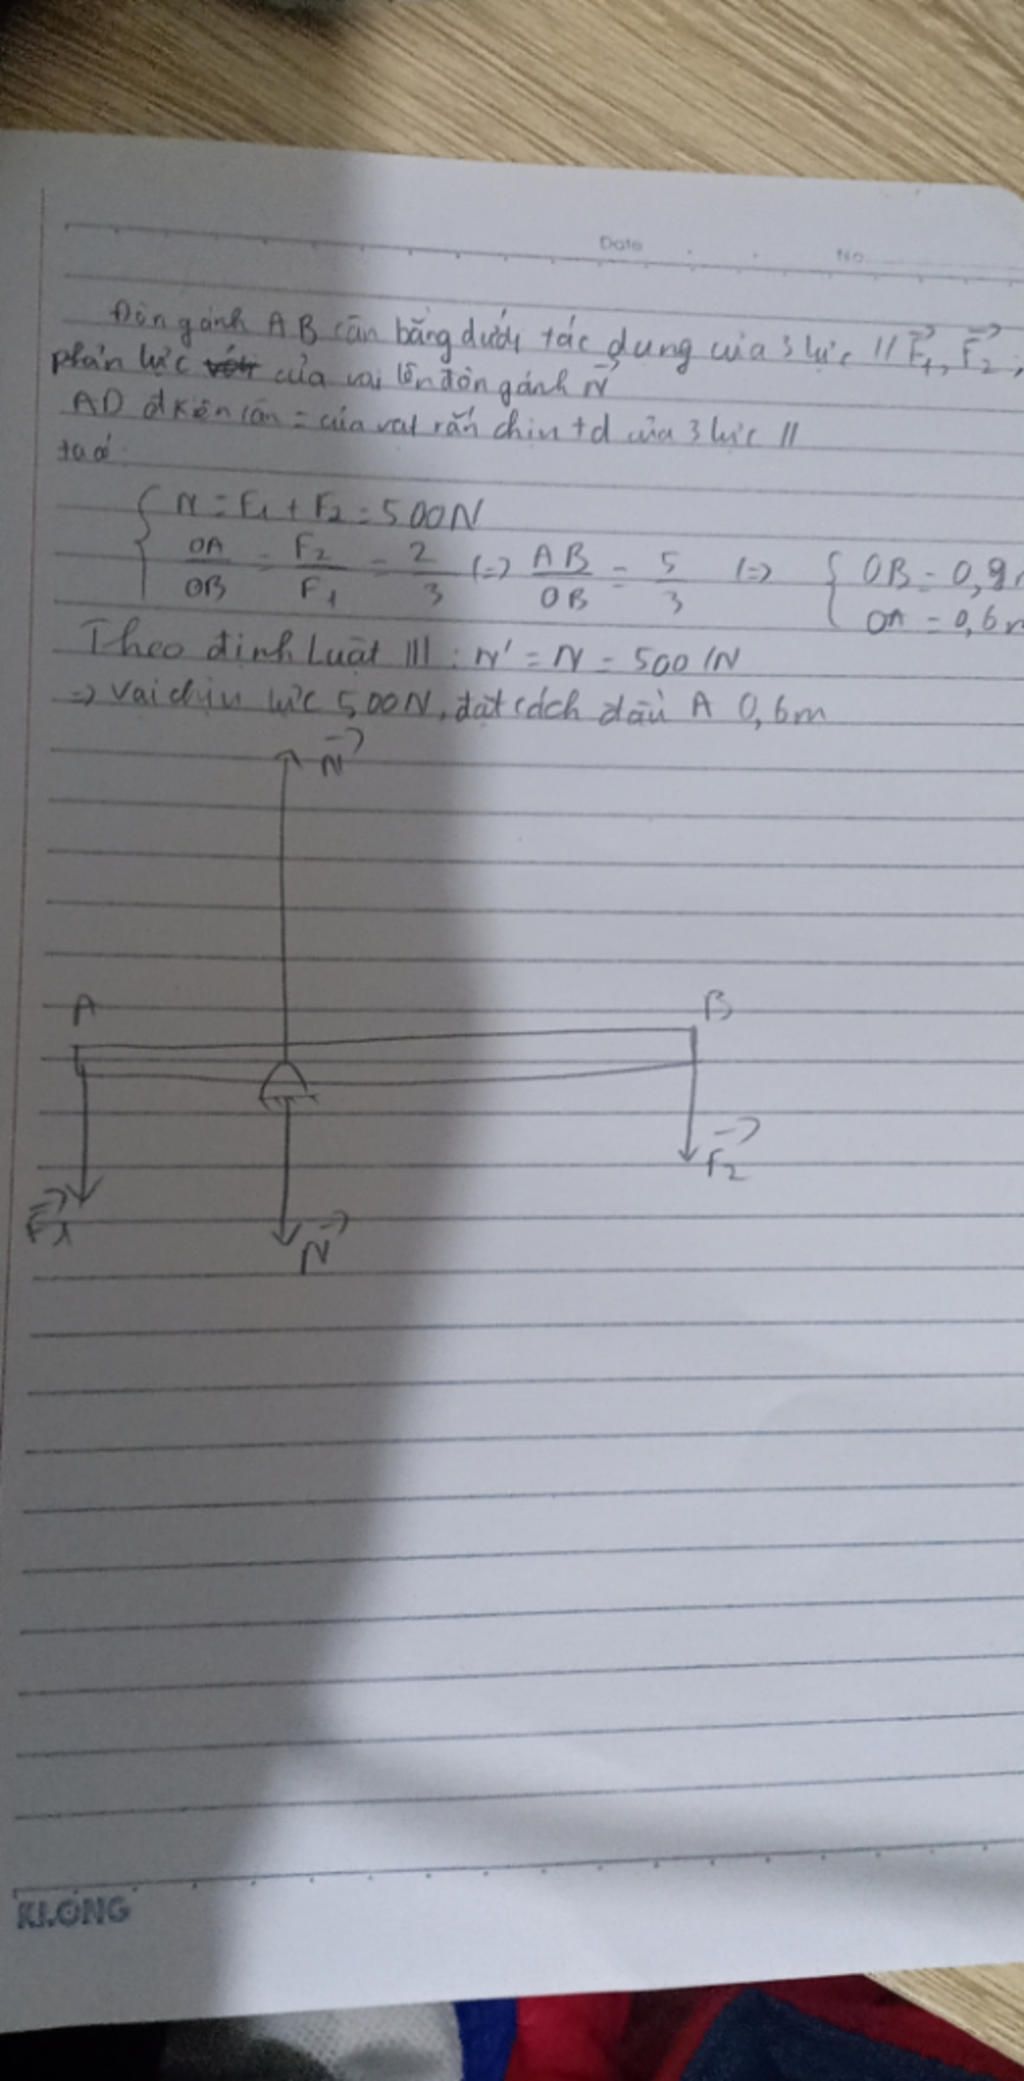 Date No
Đòn gánh AB cân bằng dưới tác dụng của 3 lực // F₁, F₂,
phản lực của vai lên đòn gánh N
AD đkiện cân = của vật rắn chịu td của 3 lực //
ta có
{ N = F₁ + F₂ = 500N
OA/OB = F₂/F₁ = 2/3 (=) AB/OB = 5/3 (=) { OB = 0,9
OA = 0,6m
Theo định luật III : N' = N = 500N
=> vai chịu lực 500N, đặt cách đầu A 0,6m
N
A B
F₂
F₁
N
KLONG